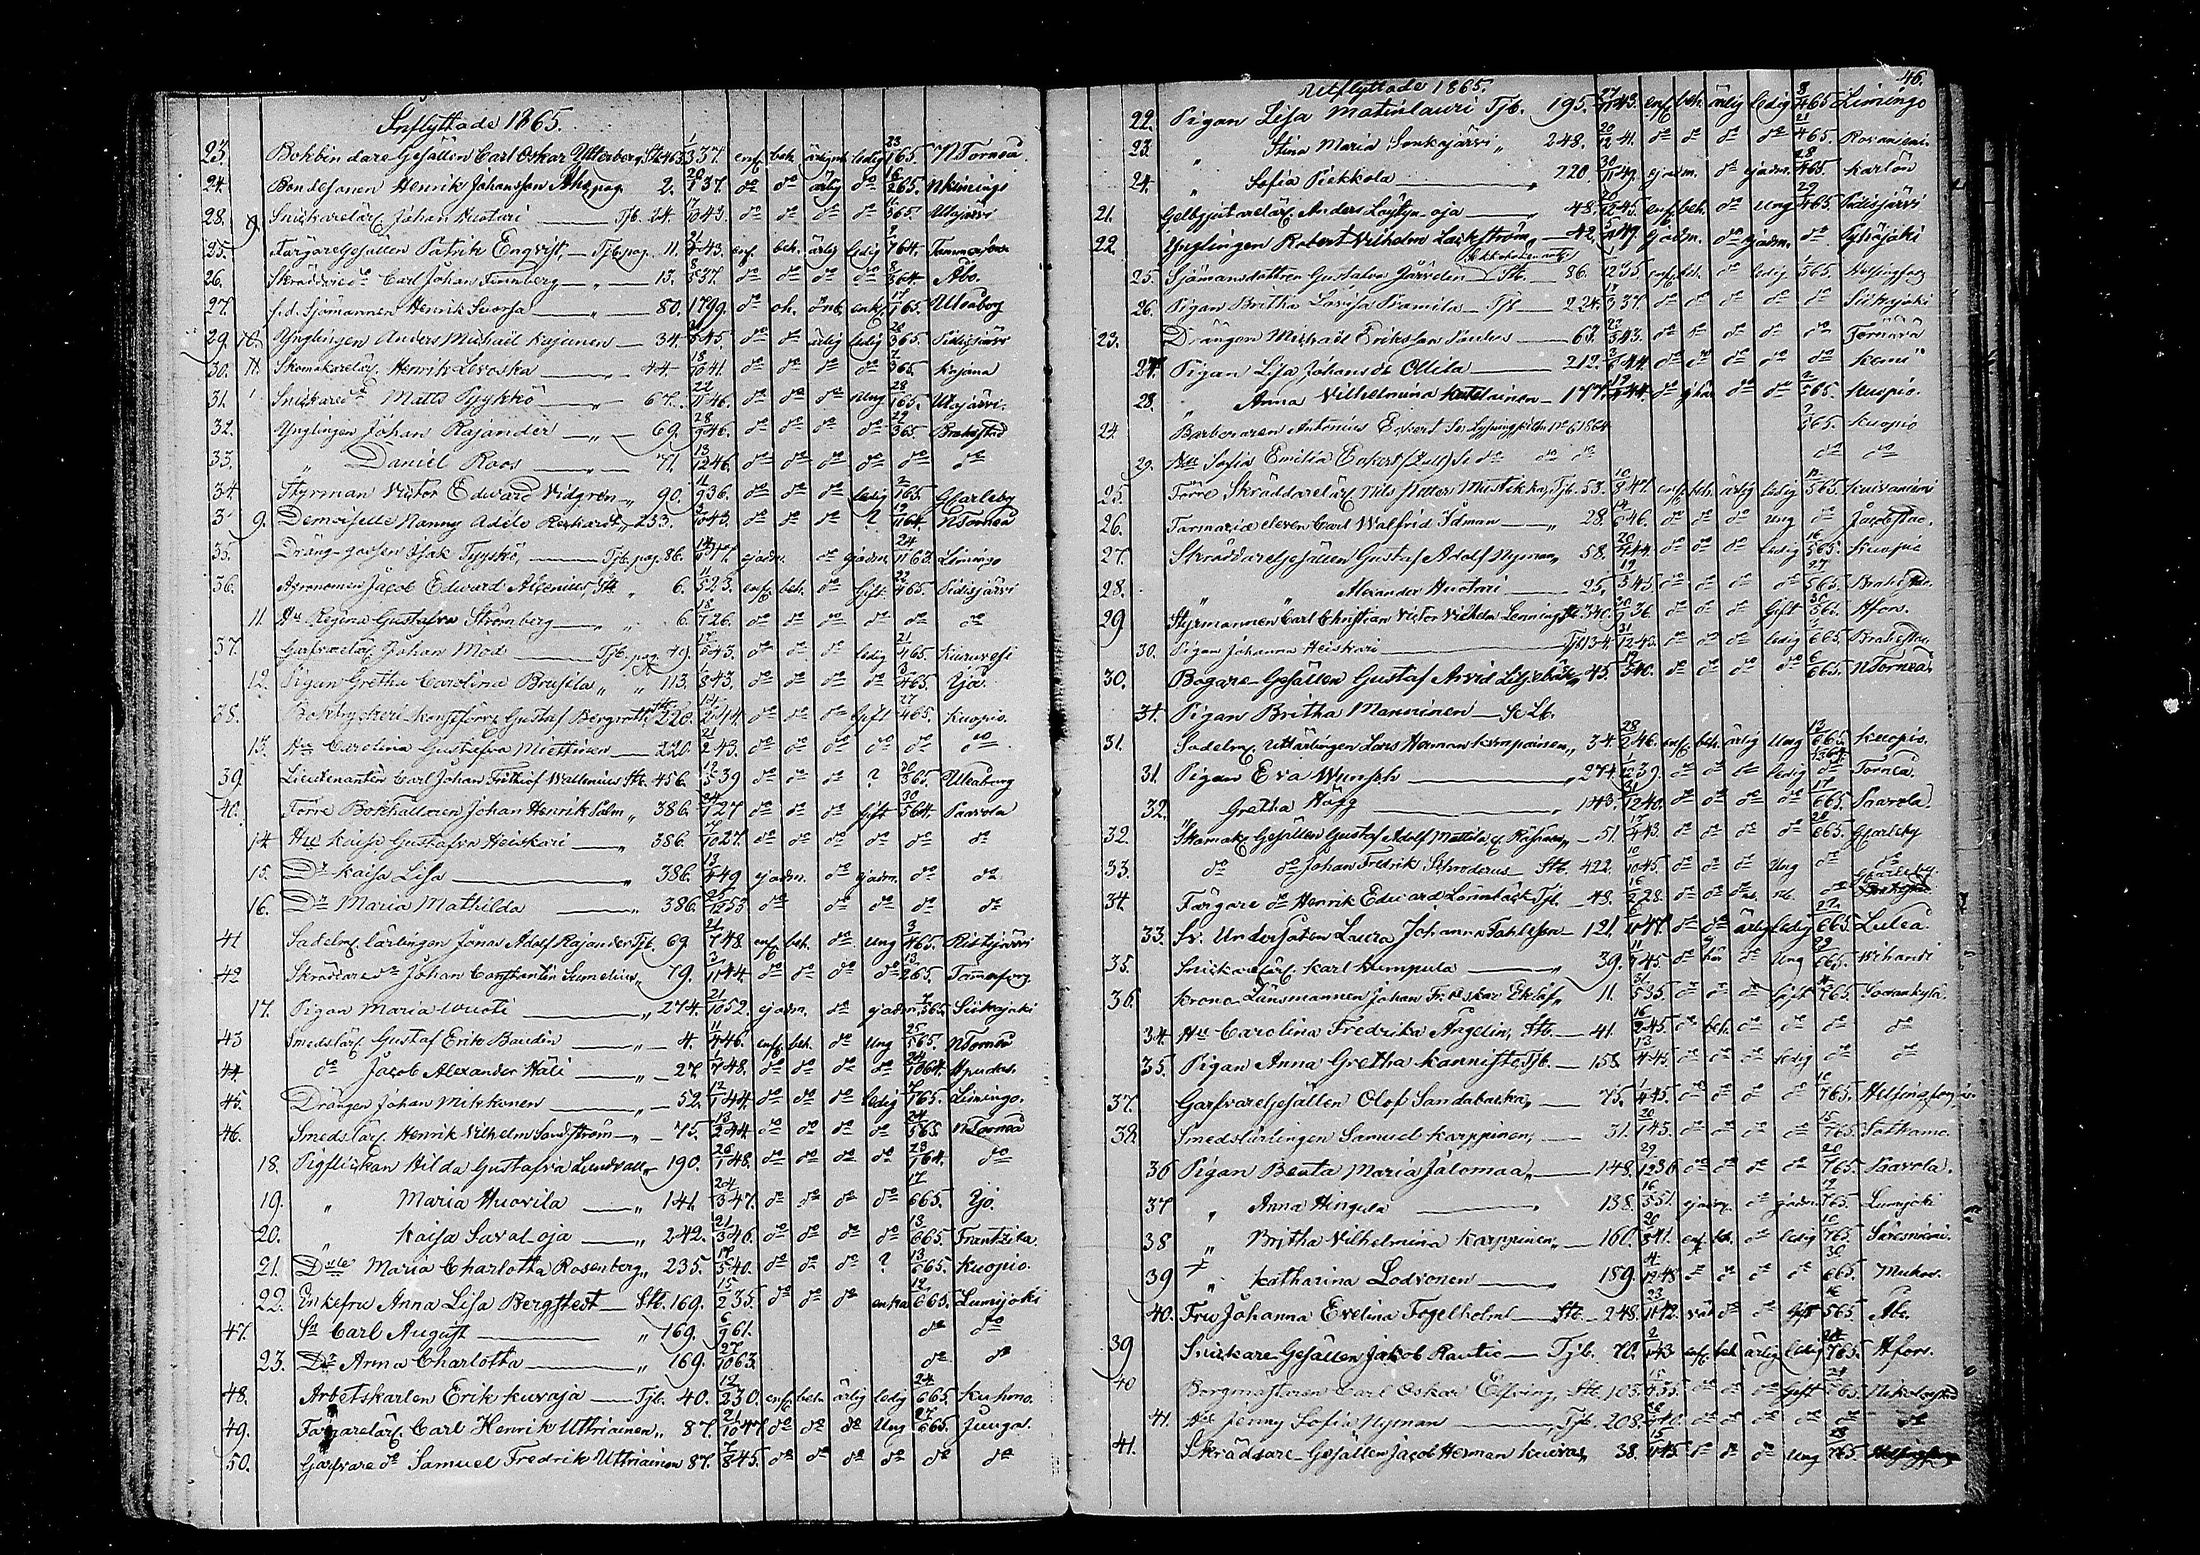 Inflyttade 1865.
23. Bokbindare Gesällen Carl Oskar Utterberg Stb. 463. 37. enf. beh. ledig 23/1 65. NTorneå.
24. Bondesonen Henrik Johansson pag. 2. 20/1 37. do do ärlig do 16/2 65. Nkimingi
28. 9. Snickarelärl. Johan Huoturi Tjb. 24. 17/10 43. do do do do 11/3 65. Utajärvi
25. FärgareGesällen Patrik Enqvist, Tjb. pag. 11. 21/ 43. enf. beh. ärlig ledig 2/7 64. Tammerfors
26. Skräddare do Carl Johan Finnberg " 13. 8/8 37. do do do do 8/ 64. Åbo.
27. f.d. Sjömannen Henrik Suorsa " 80. 1799. do enkl. 17/1 65. Uleåborg
29. 10. Ynglingen Anders Michaël Kajanen 34. 45. do do ärlig ledig 26/3 65. Pidisjärvi
30. 11. Skomakarelärl. Henrik Levoska 44. 18/10 41. do do do do 7/3 65. Kajana
31. Snickare do Matts Pyykkö " 67. 22/11 46. do do do Ung 28/1 65. Utajärvi.
32. Ynglingen Johan Rajander " 69. 28/9 46. do do do do 29/3 65. Brahestad
33. " Daniel Roos " 71. 13/12 46. do do do do do do
34. Styrman Victor Edward Vidgren " 90. 11/9 36. do do do ledig 2/1 65. GCarleby
3 9. Demoiselle Nanny Adéle Reshardt " 253. 3/10 43. do do do ? 19/11 64. NTorneå
35. Dräng-gossen Isak Tyyskö, Tjb. pag. 86. 14/6 47. ejadm. do ejadm. 24/11 63. Limingo
36. Agronomen Jacob Edward Alcenius, Stb. " 6. 11/5 23. enf. beh. do Gift 22/4 65. Pidisjärvi
11. Hu Regina Gustafva Strömberg " " 6. 18/7 26. do do do do do do
37. Garfvarelärl. Johan Möd Tjb. pag. 49. 17/ 43. do do do ledig 21/4 65. Kuruvesi
12. Pigan Gretha Carolina Brusila " " 113. 1/8 43. do do do do 3/4 65. Ijo.
38. Boktryckeri konstförv. Gustaf Bergroth Stb. 220. 14. do do do Gift 27/4 65. Kuopio.
13. Hu Carolina Gustafva Miettinen 220. 21/2 43. do do do do do do
39. Lieutenanten Carl Johan Frithiof Wallenius Stb. 456. 12/5 39 do do do ? 30/3 65. Uleåborg
40. Förre Bokhållaren Johan Henrik Calm " 386. 24/1 27 do do do gift 30/5 64. Paavola
14 Hu Kaisa Gustafva Heiskari " 386. 10 27. do do do do do do
15. Dr Kaisa Lisa " 386. 13/4 49 ejadm. do ejadm. do do
16. Dr Maria Mathilda " 386. 25/12 53 do do do do do
41 Sadelm. lärlingen Jonas Adolf Rajander Tjb. 69. 21/7 48. enf. beh. do ung 3/4 65. Ristijärvi
42 Skräddare do Johan Constantin Sumelius " 79. 3/11 44. do do do do 13/2 65. Tammerfors.
17. Pigan Maria Wuoti " 274. 21/10 52. ejadm. do ejadm. 7/3 65. Siikajoki
43 Smedslärl. Gustaf Erik Baudin " 4. 11/4 46. enf. beh. do Ung 25/5 65. NTorneå
44. do Jacob Alexander Häli " 27. 1/7 48. do do do do 24/10 64. Hpudas.
45. Drängen Johan Mikkonen " 52. 12/1 44. do do do ledig 7/1 65. Limingo.
46. Smedslärl. Henrik Vilhelm Sandström " 75. 13/2 44. do do do do 24/5 65. NTorneå
18. Pigflickan Hilda Gustafva Lundvall 190. 26/1 48. do do do do 23/1 64. do
19. " Maria Huovila " 141. 24/3 47. do do do do 17/6 65. Ijo.
20. " Kaisa Savaloja " 242. 21/3 46. do do do do 13/6 65. Frantzila.
21. Dlle Maria Charlotta Rosenberg " 235. 17/5 40. do do do ? 13/6 65. Kuopio.
22. Enkefru Anna Lisa Bergstedt Stb. 169. 15/2 35. do do do enka 12/6 65. Lumijoki
47. Sn Carl August " 169. 6/9 61. do do
23. Dr Anna Charlotta " 169. 27/10 63. do do
48. Arbetskarlen Erik Kuvaja Tjb. 40. 12/2 30. enf. beh. ärlig ledig 24/6 65. Kuhmo.
49. Färgarelärl. Carl Henrik Uttriainen " 87. 21/10 47 do do do Ung 27/6 65. Jurga.
50. Garfvare do Samuel Fredrik Uttriainen 87. 7/8 45. do do do do do do
46.
Utflyttade 1865.
22. Pigan Lisa Matinlauri Tjb. 195. 27/ 43. enf. beh. ärlig ledig 8/4 65 Limingo
23. " Stina Maria Sonkajärvi " 248. 20/12 41. do do do do 21/4 65. Rovaniemi
24. " Sofia Piekkola " 220. 30/11 49. ejadm. do ejadm. 28/4 65. Karlön
21. Gelbgjutarelärl. Anders Löytyn-oja " 48. 45. enf. beh. do Ung 29/4 65. Pidisjärvi
22. Ynglingen Robert Vilhelm Lackström, 42. 49. ejadm. do ejadm. do Pyhäjoki
25. Sjömansdottren Gustafva Järvelin Stb. 86. 1/12 35 enf. beh. do ledig 1/5 65. Helsingfors
26. Pigan Britha Lovisa Kamila Tjb. 224. 37. do do do do do Siikajoki
23. Drängen Michaël Eriksson Paulus 63. 22/5 43. do do do do do Tornävä
27. Pigan Lisa Johansdr Ollila 212. 44. do do do do do Kemi
28. " Anna Vilhelmina Katilainen 177. 19/ 44. do do do 2/5 65. Kuopio.
24. Barberaren Antonius Eckert 2/5 65. Kuopio
29. Hu Sofia Emilia Eckert do do do do do
25 Förre Skräddarelärl. Nils Petter Mustikka, Tjb. 53. 10/8 47. enf. beh. ärlig ledig 12/5 65. Kuivaniemi
26. Farmacie eleven Carl Walfrid Idman " 28. 14/6 46. do do do Ung do Jacobstad.
27. SkräddareGesällen Gustaf Adolf Nyman " 58. 20/ 44. do do do ledig 16/5 65. Kuopio
28. " " Alexander Huotari 25. 19/5 45 do do do do 27/5 65. Brahestad.
29 Styrmannen Carl Christian Victor Vilhelm Lenning Stb. 340. 20/9 36. do do do Gift 30/5 65. Hfors.
30. Pigan Johanna Heiskari Tjb. 134. 31/12 45. do do do ledig 6 65. Brahestad
30. Bagare-Gesällen Gustaf Arvid Liljebäck " 45. 19/5 40. do do do do 6/6 65. NTorneå
31. Pigan Britha Manninen Se Lb.
31. Sadelm. Uttlärlingen Lars Herman Kumpainen " 34. 28/2 46. enf. beh. ärlig Ung 13/6 65. Kuopio.
31. Pigan Eva Wunsch " 274. 1/12 39. do do do ledig do Torneå.
32. " Gretha Hägg " 143. 31/12 40. do do do do 17/6 65. Paavola
32. Skomak. Gesällen Gustaf Adolf Mattila 51. 17/ 43. do do do do 20/6 65. GCarleby
33. do do Johan Fredrik Schroderus Stb. 422. 10/10 45. do do do Ung do do
34. Färgare do Henrik Edvard Lönnbäck Tjb. 48. 16/2 28. do do do GCarleby.
33. Sv. Undersåten Laura Johanna Tahlsson 121. 6/ 47. do do ärlig ledig 22/6 65. Luleå.
35. Snickarelärl. Karl Kumpula " 39. 11/7 45. do do Ung 29/6 65. Wihandi
36. Krono-Länsmannen Johan Fr. Oskar Eklöf " 11. 31/5 35. do do do Gift 4/7 65. Sodankylä.
34. Hu Carolina Fredrika Ångelin, Stb. 41. 16/2 45 do beh. do do do do
35. Pigan Anna Gretha Kanniste, Tjb. 158. 13/4 45. do do do ledig do do
37. GarfvareGesällen Olof Sandabacka, 75. 1/4 45. do do do do 10/7 65. Helsingfors
38. Smedslärlingen Samuel Karppinen, 31. 20/1 43. do do do do 15/7 65. Sotkamo.
36 Pigan Beata Maria Jälomaa " 148. 29/12 36 do do do do 20/7 65. Paavola.
37 " Anna Hingula " 138. 16/5 51. ejadm. do ejadm. 12/7 65. Lumijoki
38 " Britha Vilhelmina Karppinen " 160. 20/8 41. enf. beh. do ledig 10/7 65. Säresniemi.
39 " Katharina Lodvonen 189. 4/12 48 do do do do 30/6 65. Muhos.
40. Fru Johanna Evelina Fogelholm Stb. 248. 23/11 42. do do Gift 16/5 65 Åbo.
39 Snickare-Gesällen Jakob Rautio Tjb. 70. 2/11 43 enf. beh. ärlig ledig 24/7 65. Hfors.
40 Borgmästaren Carl Oskar Elfving, Stb. 103. 15/4 35. do do do Gift 24/7 65. Nikolaistad
41. Hu Jenny Sofia Nyman Tjb. 208. 40. do do do do do do
41. Skräddare-Gesällen Jacob Herman Kuvas " 38. 15/11 45 do do do Ung 28/7 65.